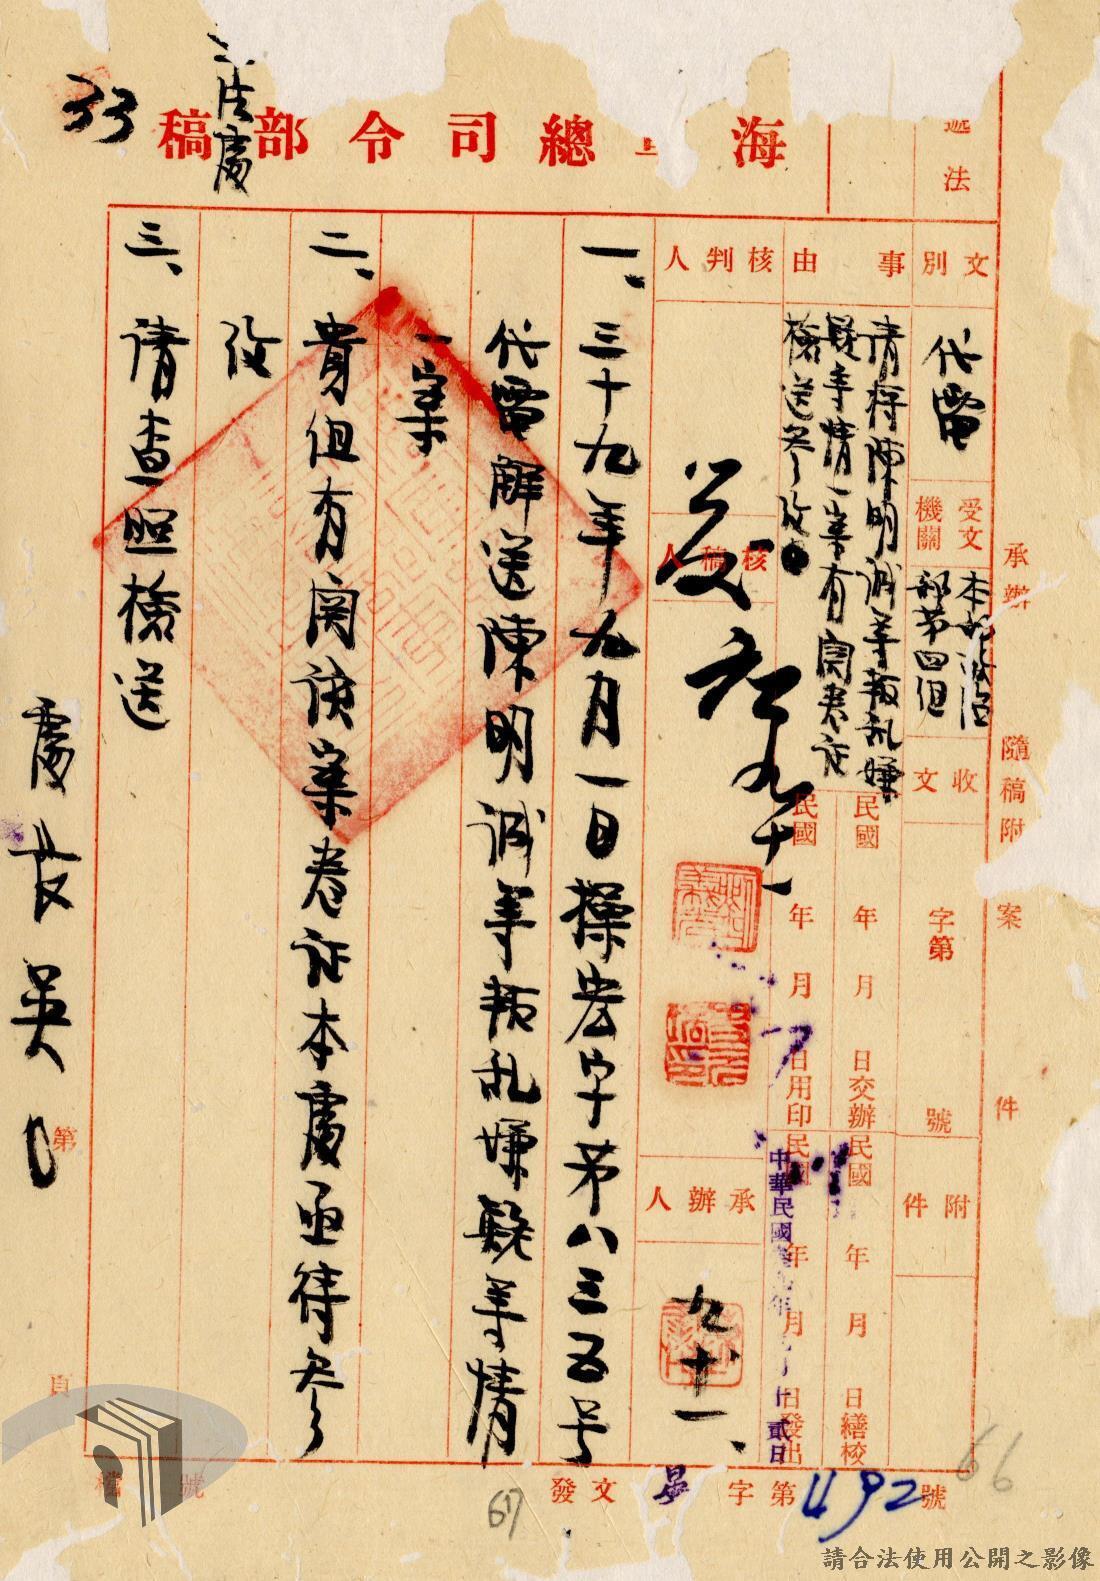 海 總司令部稿
法處
33
遞法
文別
代電
事由
請將陳明誠等叛乱嫌
疑等情一案有関卷証
檢送参攷
核判人
受文機關
本部政治
部第四組
收文
字第 號
附件
核稿人
發
九十一
承辦人
九十一、
民國 年 月 日交辦
民國 年 月 日繕校
民國 年 月 日用印
民國 年 月 日發出
中華民國 年 月 貳日
承辦 隨稿附 案 件
一、三十九年九月一日操宏字第八三五号
代電解送陳明誠等叛乱嫌疑等情
一案
二、貴組有関該案卷証本處亟待参
攷
三、請查照檢送
處長吳
第 頁
檔 號
發文 字第1492號
66
67
請合法使用公開之影像